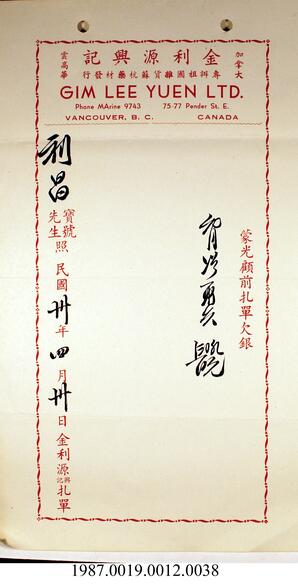 加拿大
金利源興記
雲高華
專辦祖國雜貨蘇杭藥材發行
GIM LEE YUEN LTD.
Phone MArine 9743 75-77 Pender St. E.
VANCOUVER, B. C. CANADA
蒙光顧前扎單欠銀
利昌寶號先生照民國卅年四月卅日金利源興記扎單
1987.0019.0012.0038